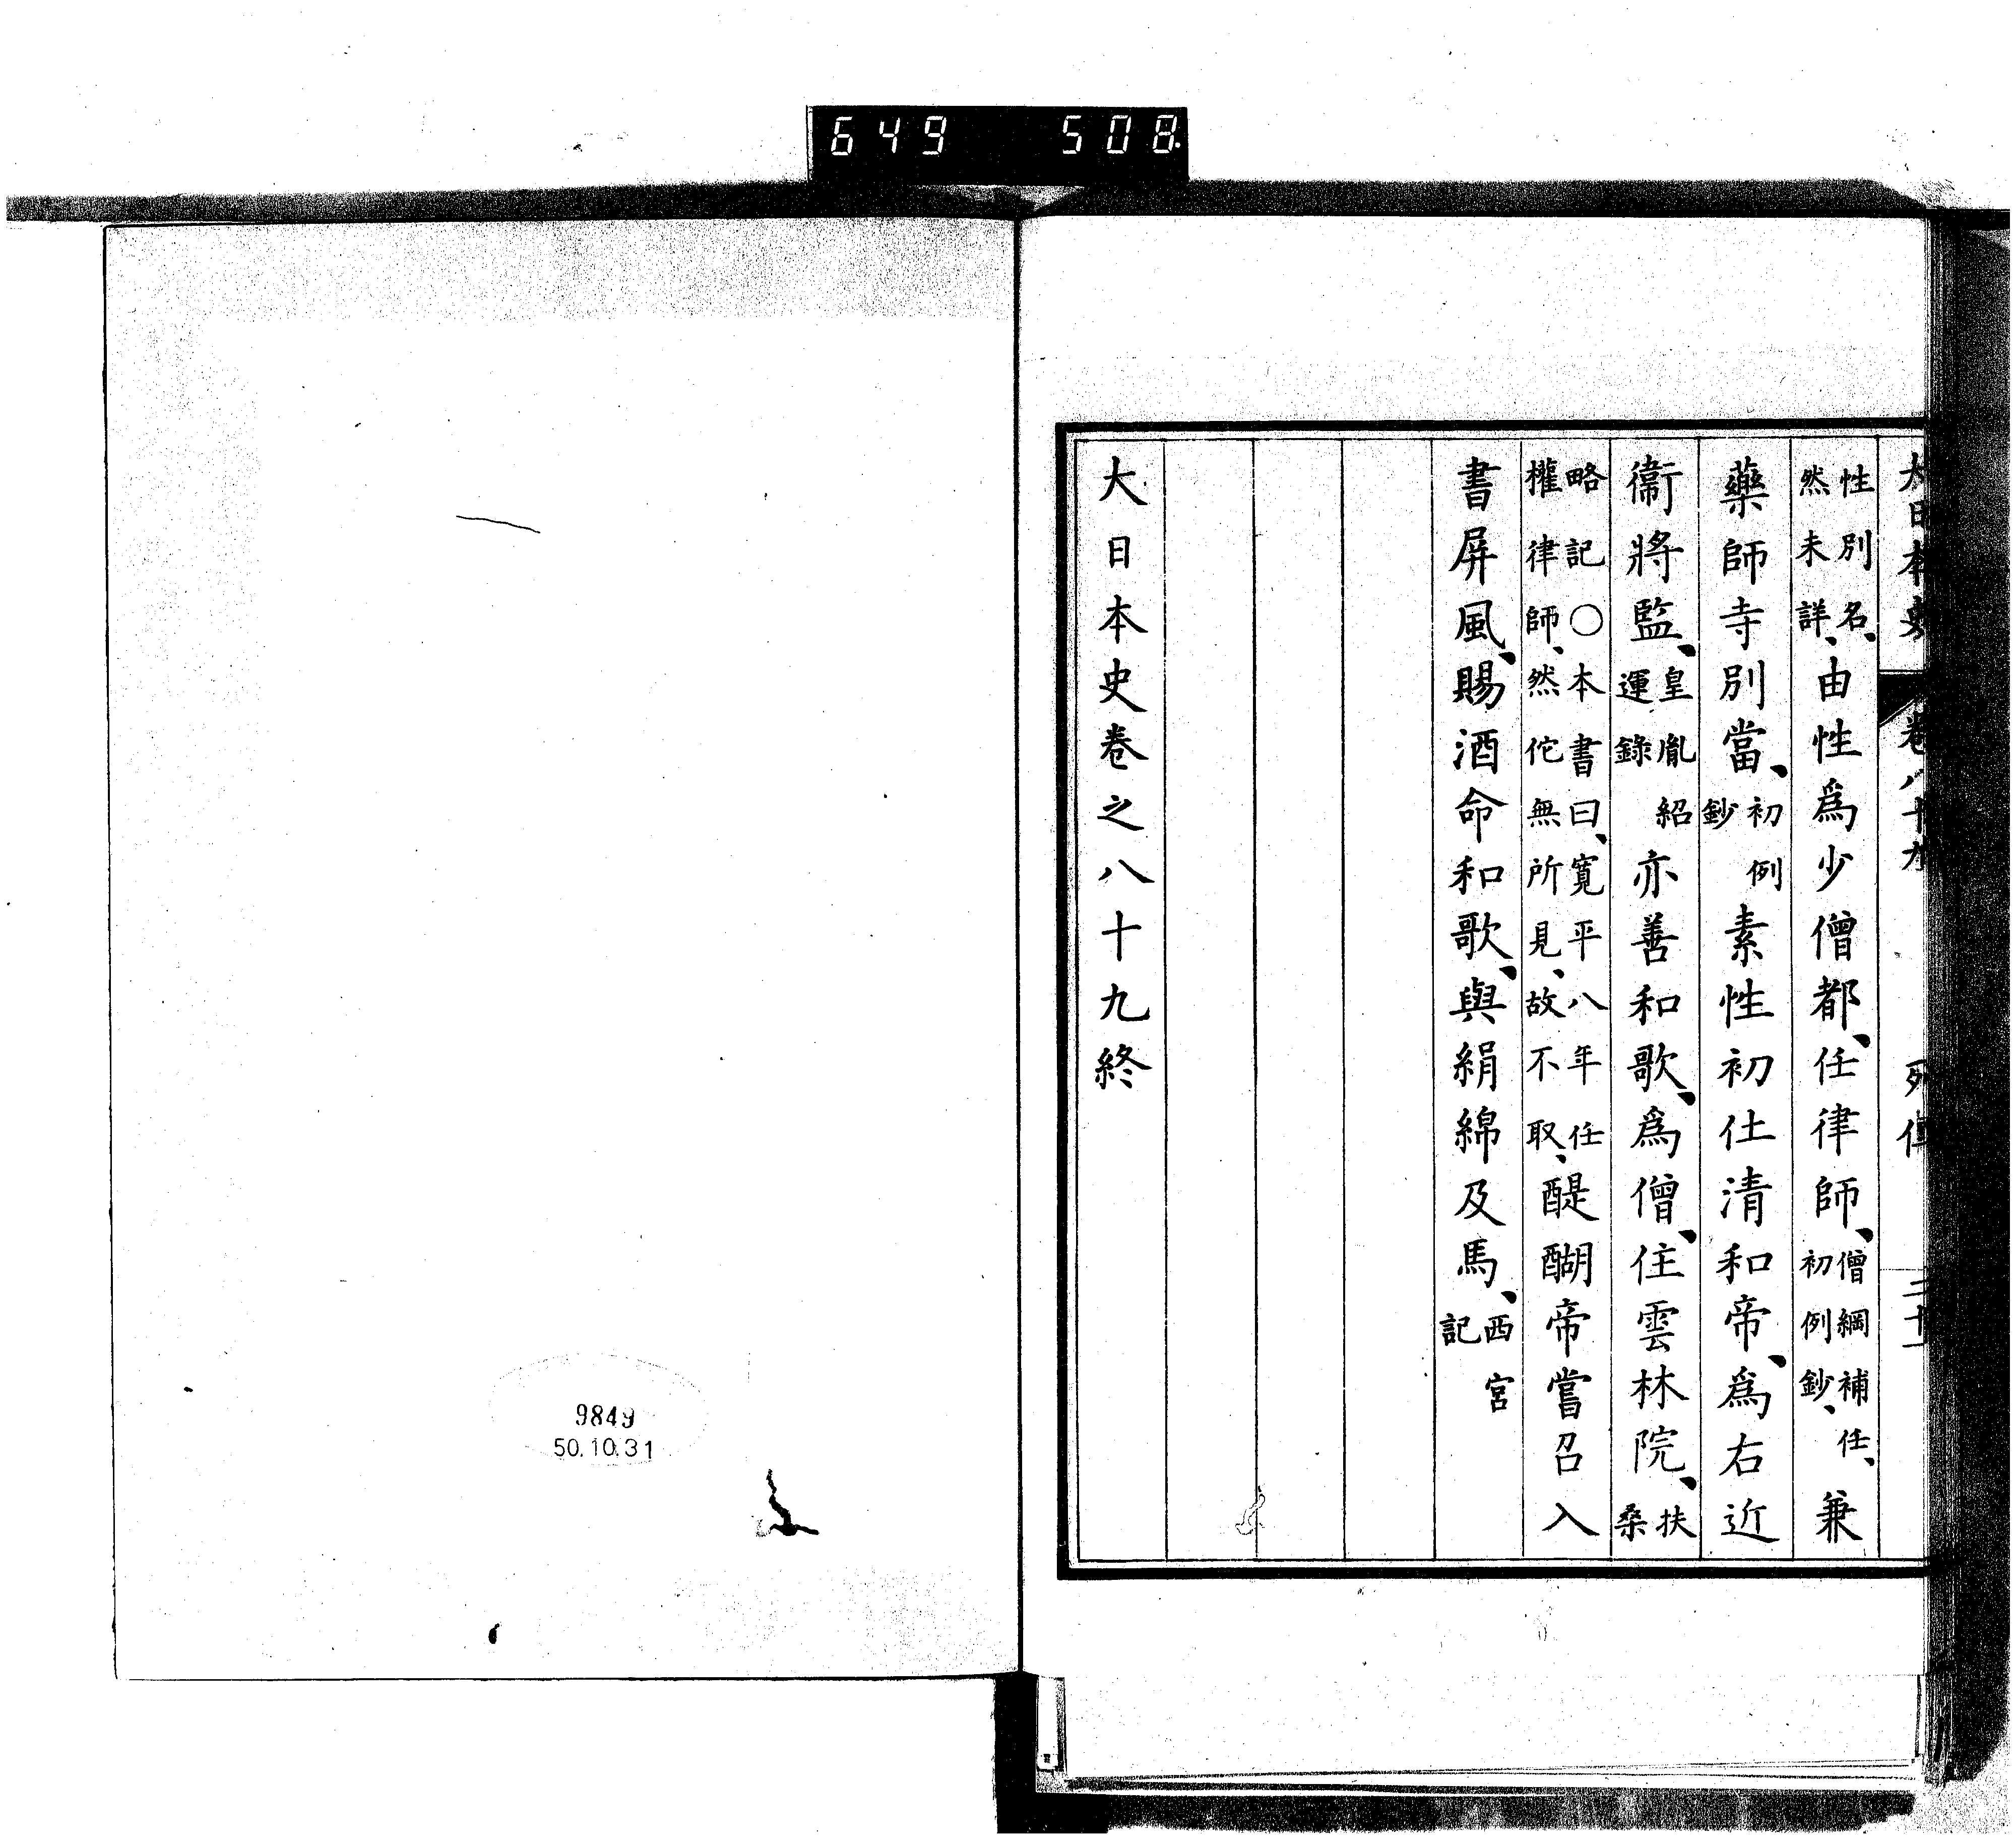 649 508
大日本史 卷八十九 列傳 二十一
性別名、然未詳、由性爲少僧都、任律師、僧綱補任、初例鈔、兼
藥師寺別當、初例鈔素性初仕淸和帝、爲右近
衞將監、皇胤紹運錄亦善和歌、爲僧、住雲林院、扶桑
略記〇本書曰、寬平八年任權律師、然佗無所見、故不取、醍醐帝嘗召入
書屏風、賜酒命和歌、與絹綿及馬、西宮記
大日本史卷之八十九終
9849
50.10.31